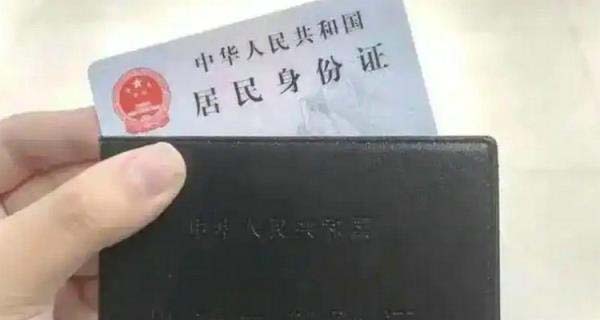 中华人民共和国
居民身份证
中华人民共和国